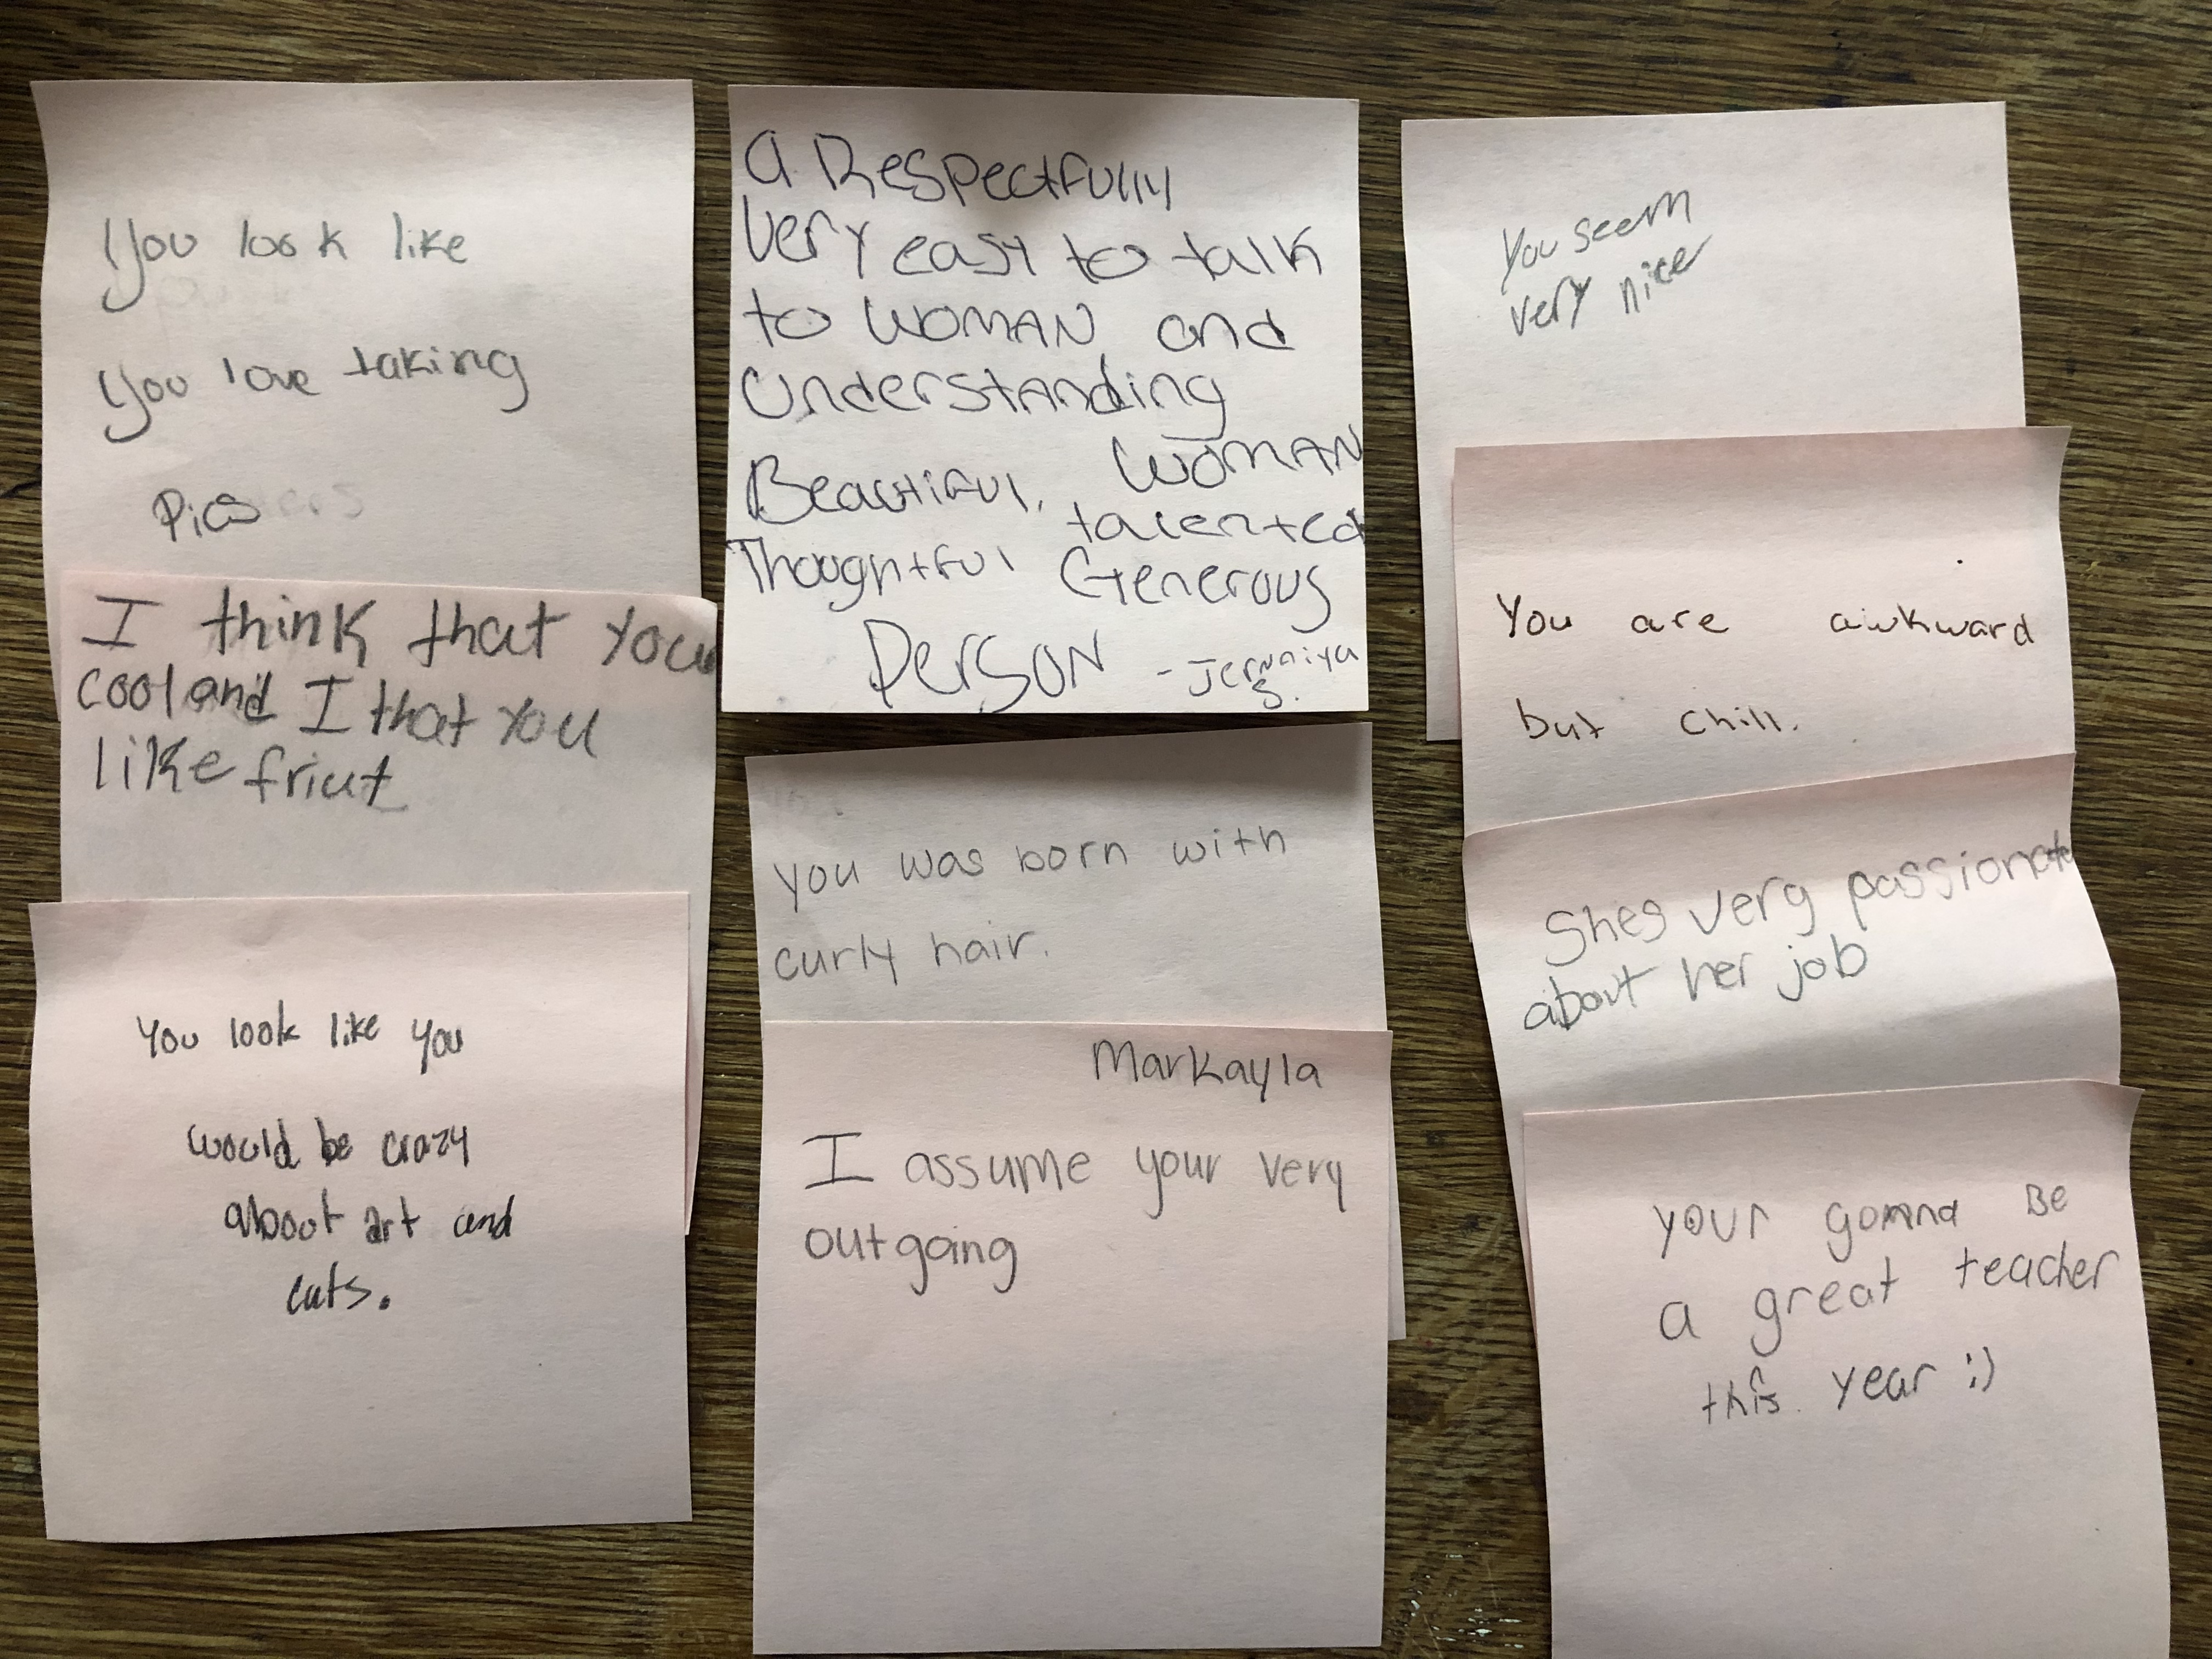 You look like
you love taking
Pics
I think that your
cool and I that you
like friut
You look like you
would be crazy
about art and
cats.
A Respectfully
Very easy to talk
to WOMAN, and
Understanding
Beautiful, WOMAN
talented
Thoughtful Generous
PersoN - Jernaiya
S.
you was born with
curly hair.
Markayla
I assume your very
outgoing
You seem
very nice
You are awkward
but chill.
Shes very passionate
about her job
your gonna Be
a great teacher
this year :)